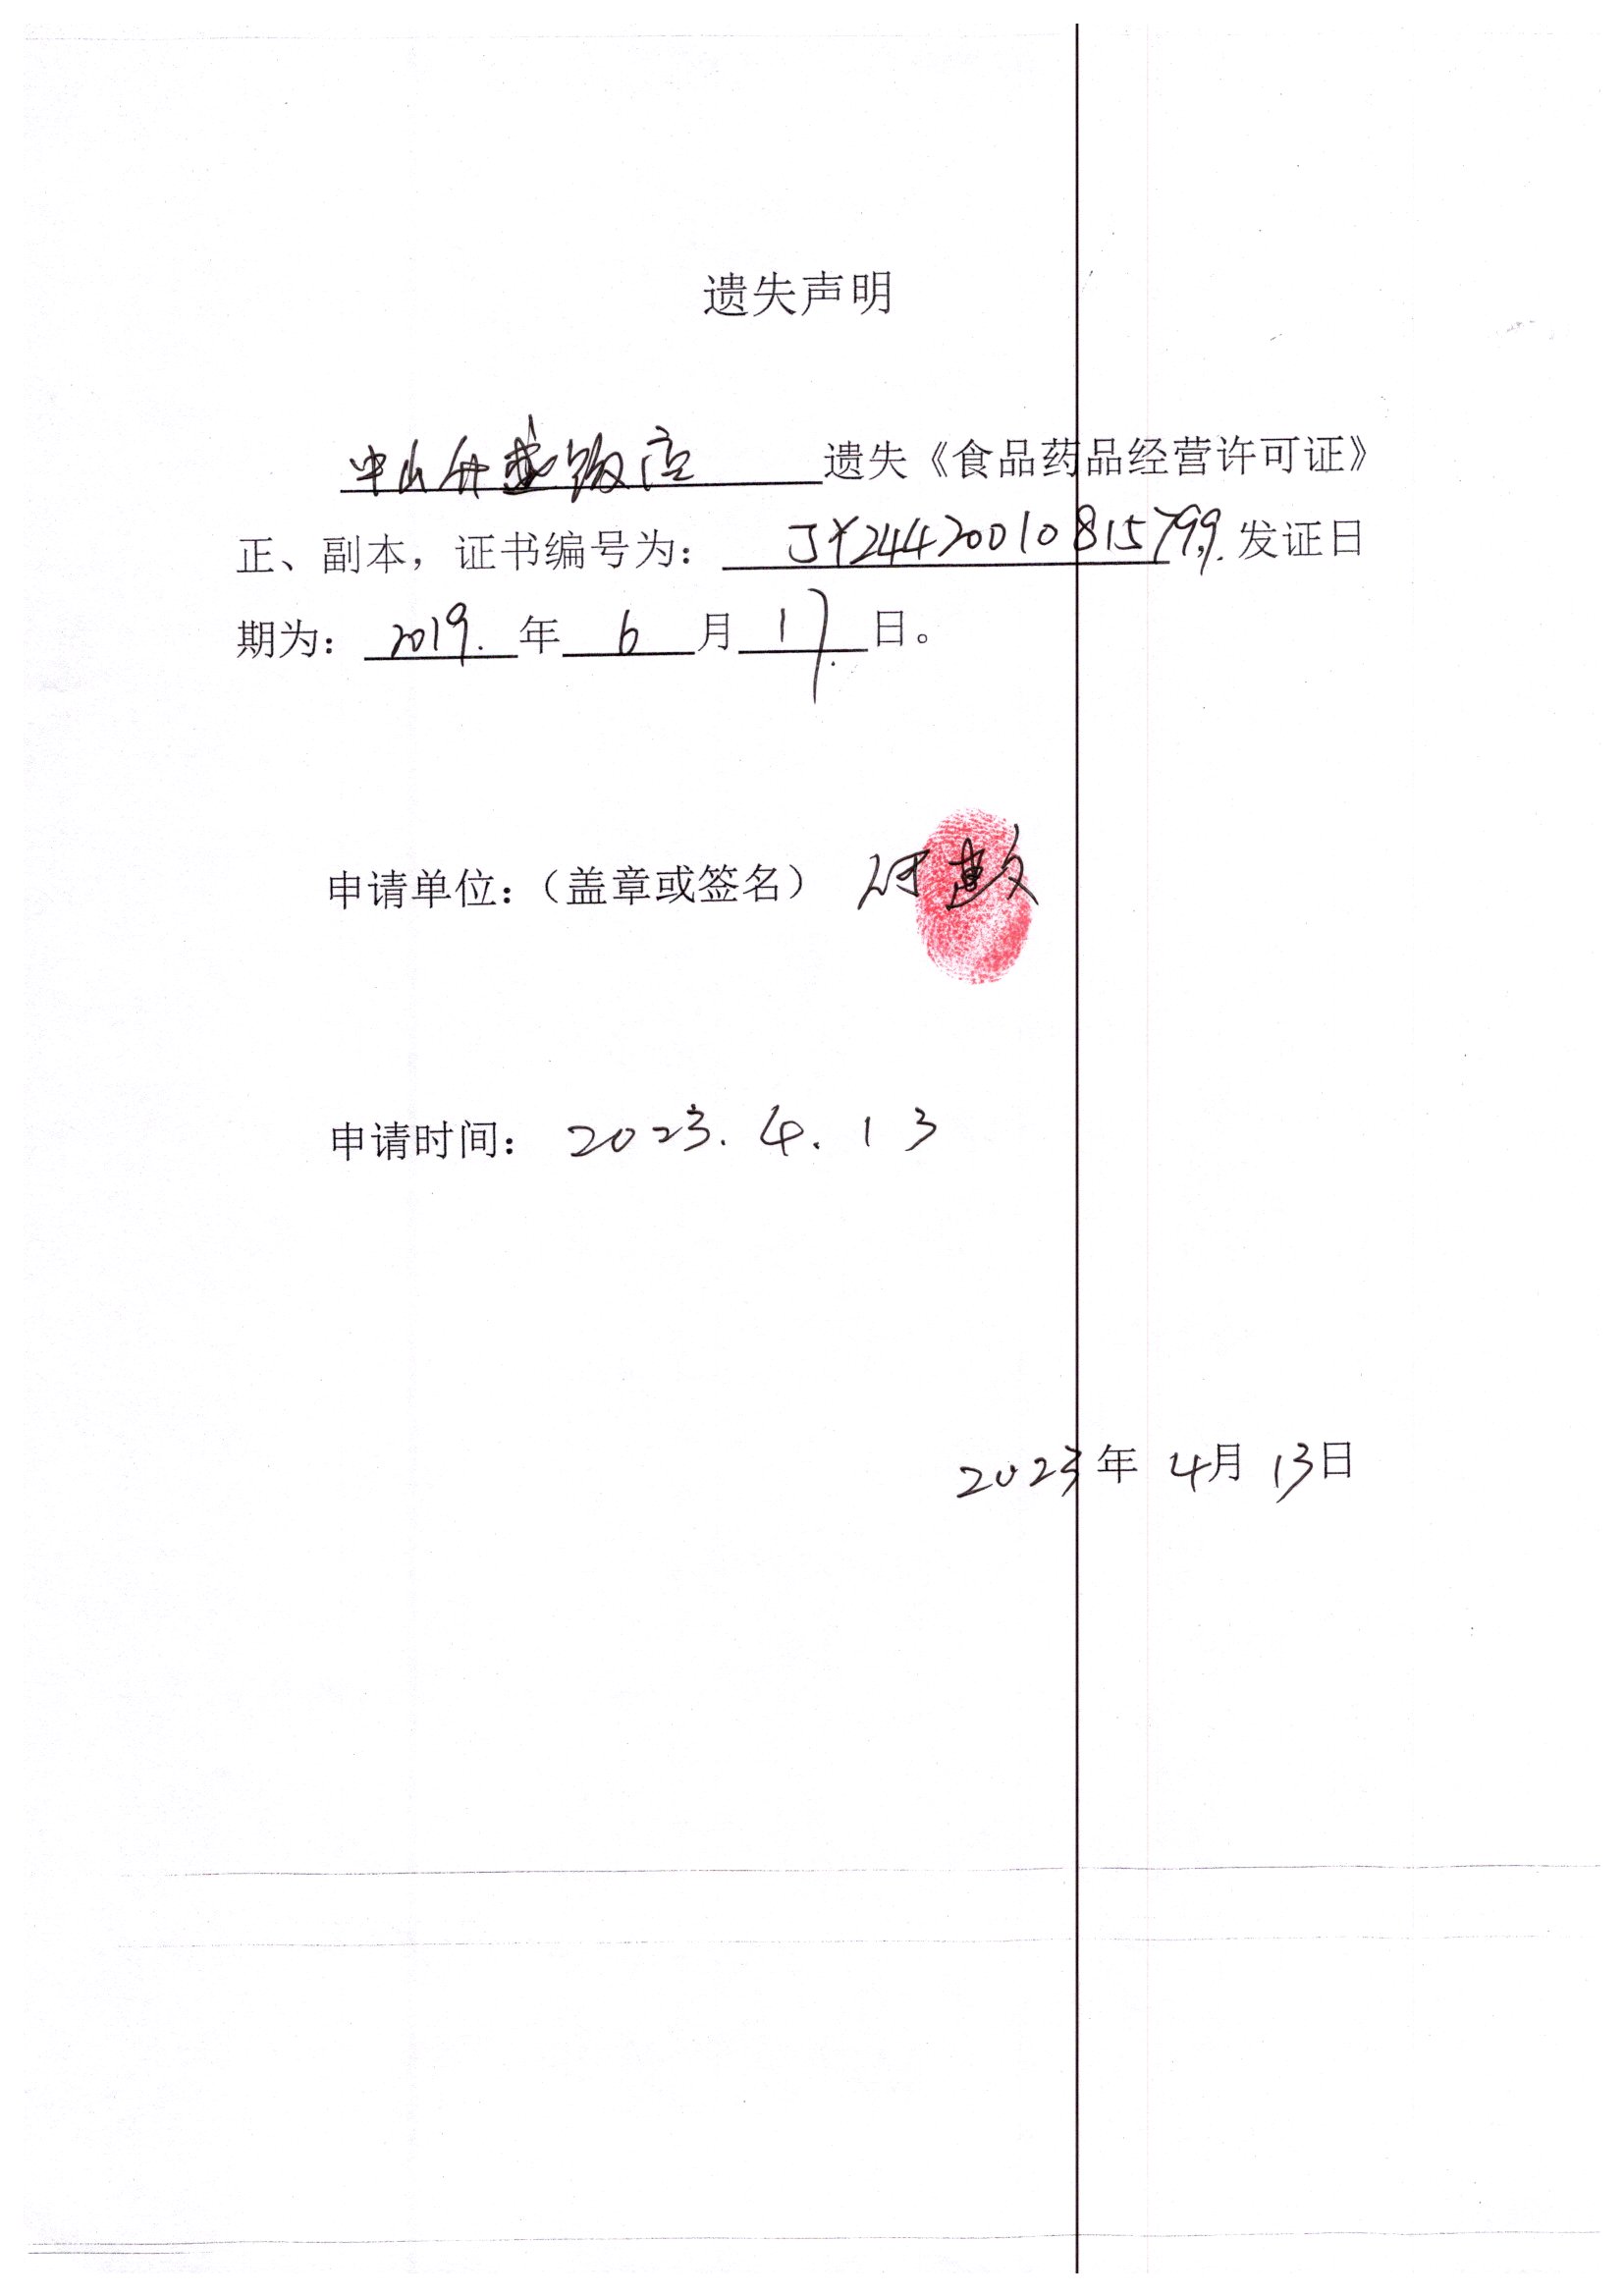 遗失声明
中山 饭店 遗失《食品药品经营许可证》
正、副本，证书编号为： JY24420010815799. 发证日
期为： 2019. 年 6 月 17. 日。
申请单位：（盖章或签名） 何
申请时间： 2023. 4. 13
2023年 4月 13日